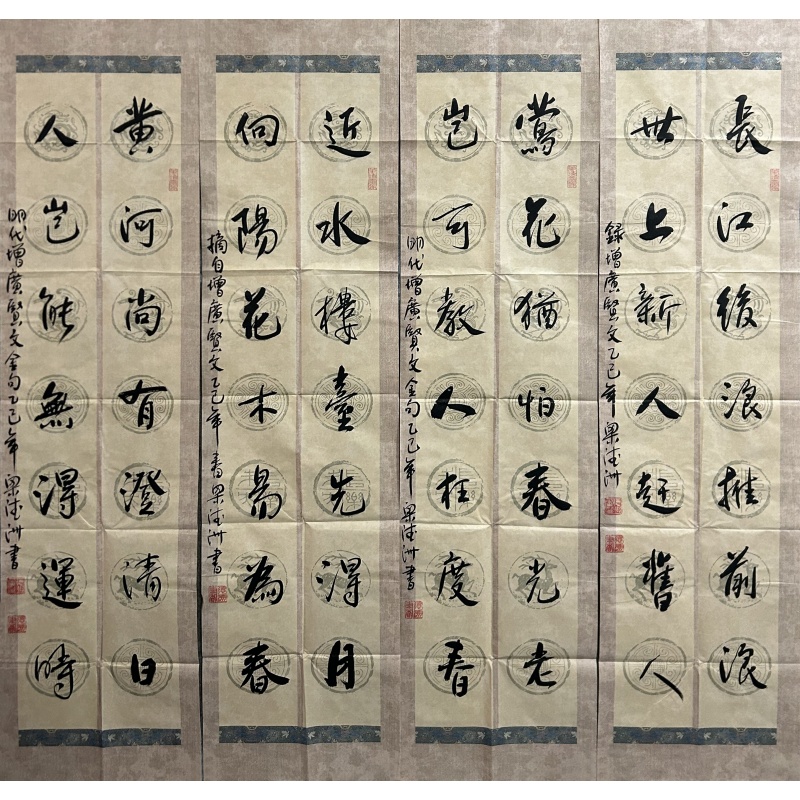 長江後浪推前浪
世上新人赶舊人
録增廣賢文乙巳年梁德洲
鶯花猶怕春光老
豈可教人枉度春
明代增廣賢文金句乙巳年梁德洲書
近水樓臺先得月
向陽花木易為春
摘自增廣賢文乙巳年春梁德洲書
黄河尚有澄清日
人豈能無得運時
明代增廣賢文金句乙巳年梁德洲書